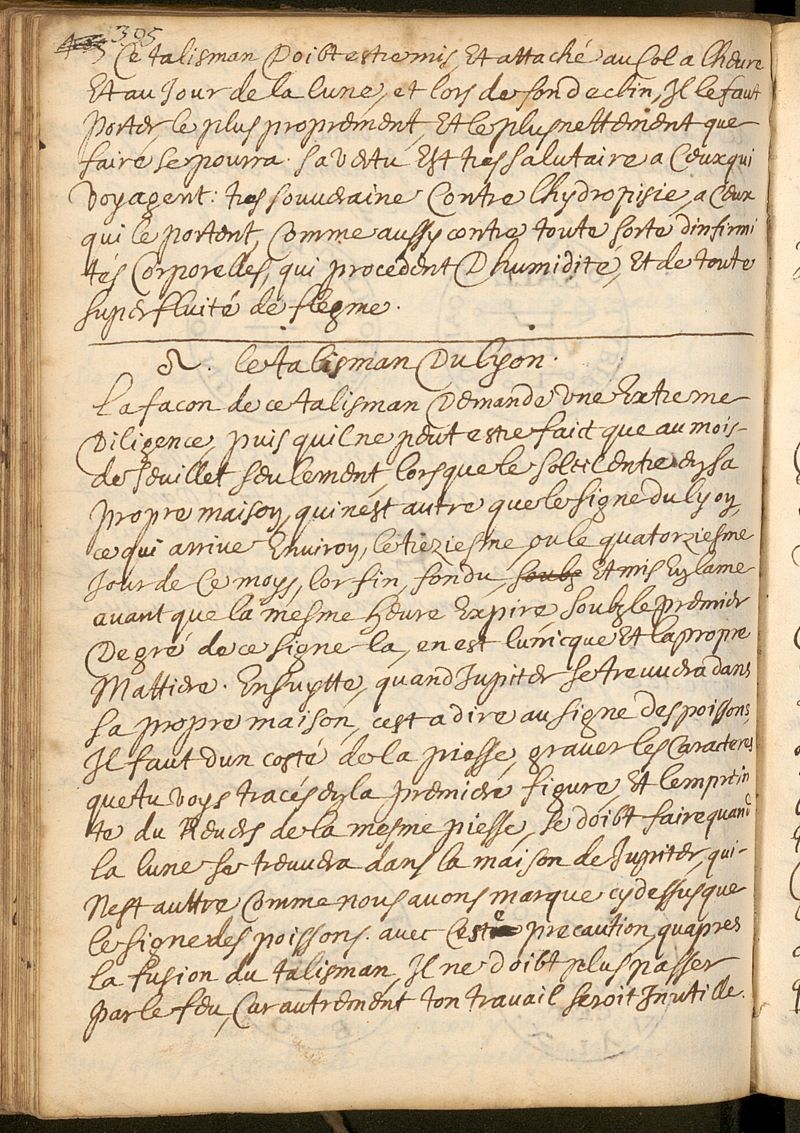 395
Ce talisman Doibt estre mis, Et attaché au Col a lheure
Et au Jour de la lune, et lors de son declin, Il le faut
porter le plus proprement, Et le plus nettement que
faire se pourra. sa vertu Est tres salutaire a Ceux qui
voyagent: tres souveraine Contre lhydropisie, a Ceux
qui le portent, Comme aussy contre toute sorte dinfirmi
tés Corporelles, qui procedent Dhumidité, Et de toute
superfluité de flegme.
♌. le talisman Du lyon.
La facon de ce talisman Demande Une Extreme
Diligence, puis quil ne peut estre faict que au mois
de Jeuillet seulement, lorsque le soleil entre en sa
propre maison, qui nest autre que le signe du lyon,
ce qui arrive Environ, le treziesme ou le quatorziesme
Jour de Ce moys, lor fin, fondu, soubz Et mis En lame
avant que la mesme heure Expire, soubz le premier
Degré de ce signe la, en est lunicque Et la propre
Mattiere. Ensuytte, quand Jupiter se treuvera dans
sa propre maison, cest a dire au signe des poissons,
Il faut dun costé de la piesse, graver les Caracteres
que tu voys tracés en la premiere figure, Et lemprein
te du Revers de la mesme piesse, se doibt faire quand
la lune se treuvera dans la maison de Jupiter, qui
Nest auttre Comme nous avons marque cy dessus que
le signe des poissons. avec Ceste precaution, quapres
la fusion du talisman, Il ne doibt plus passer
par le feu, Car autrement ton travail seroit Inutille.